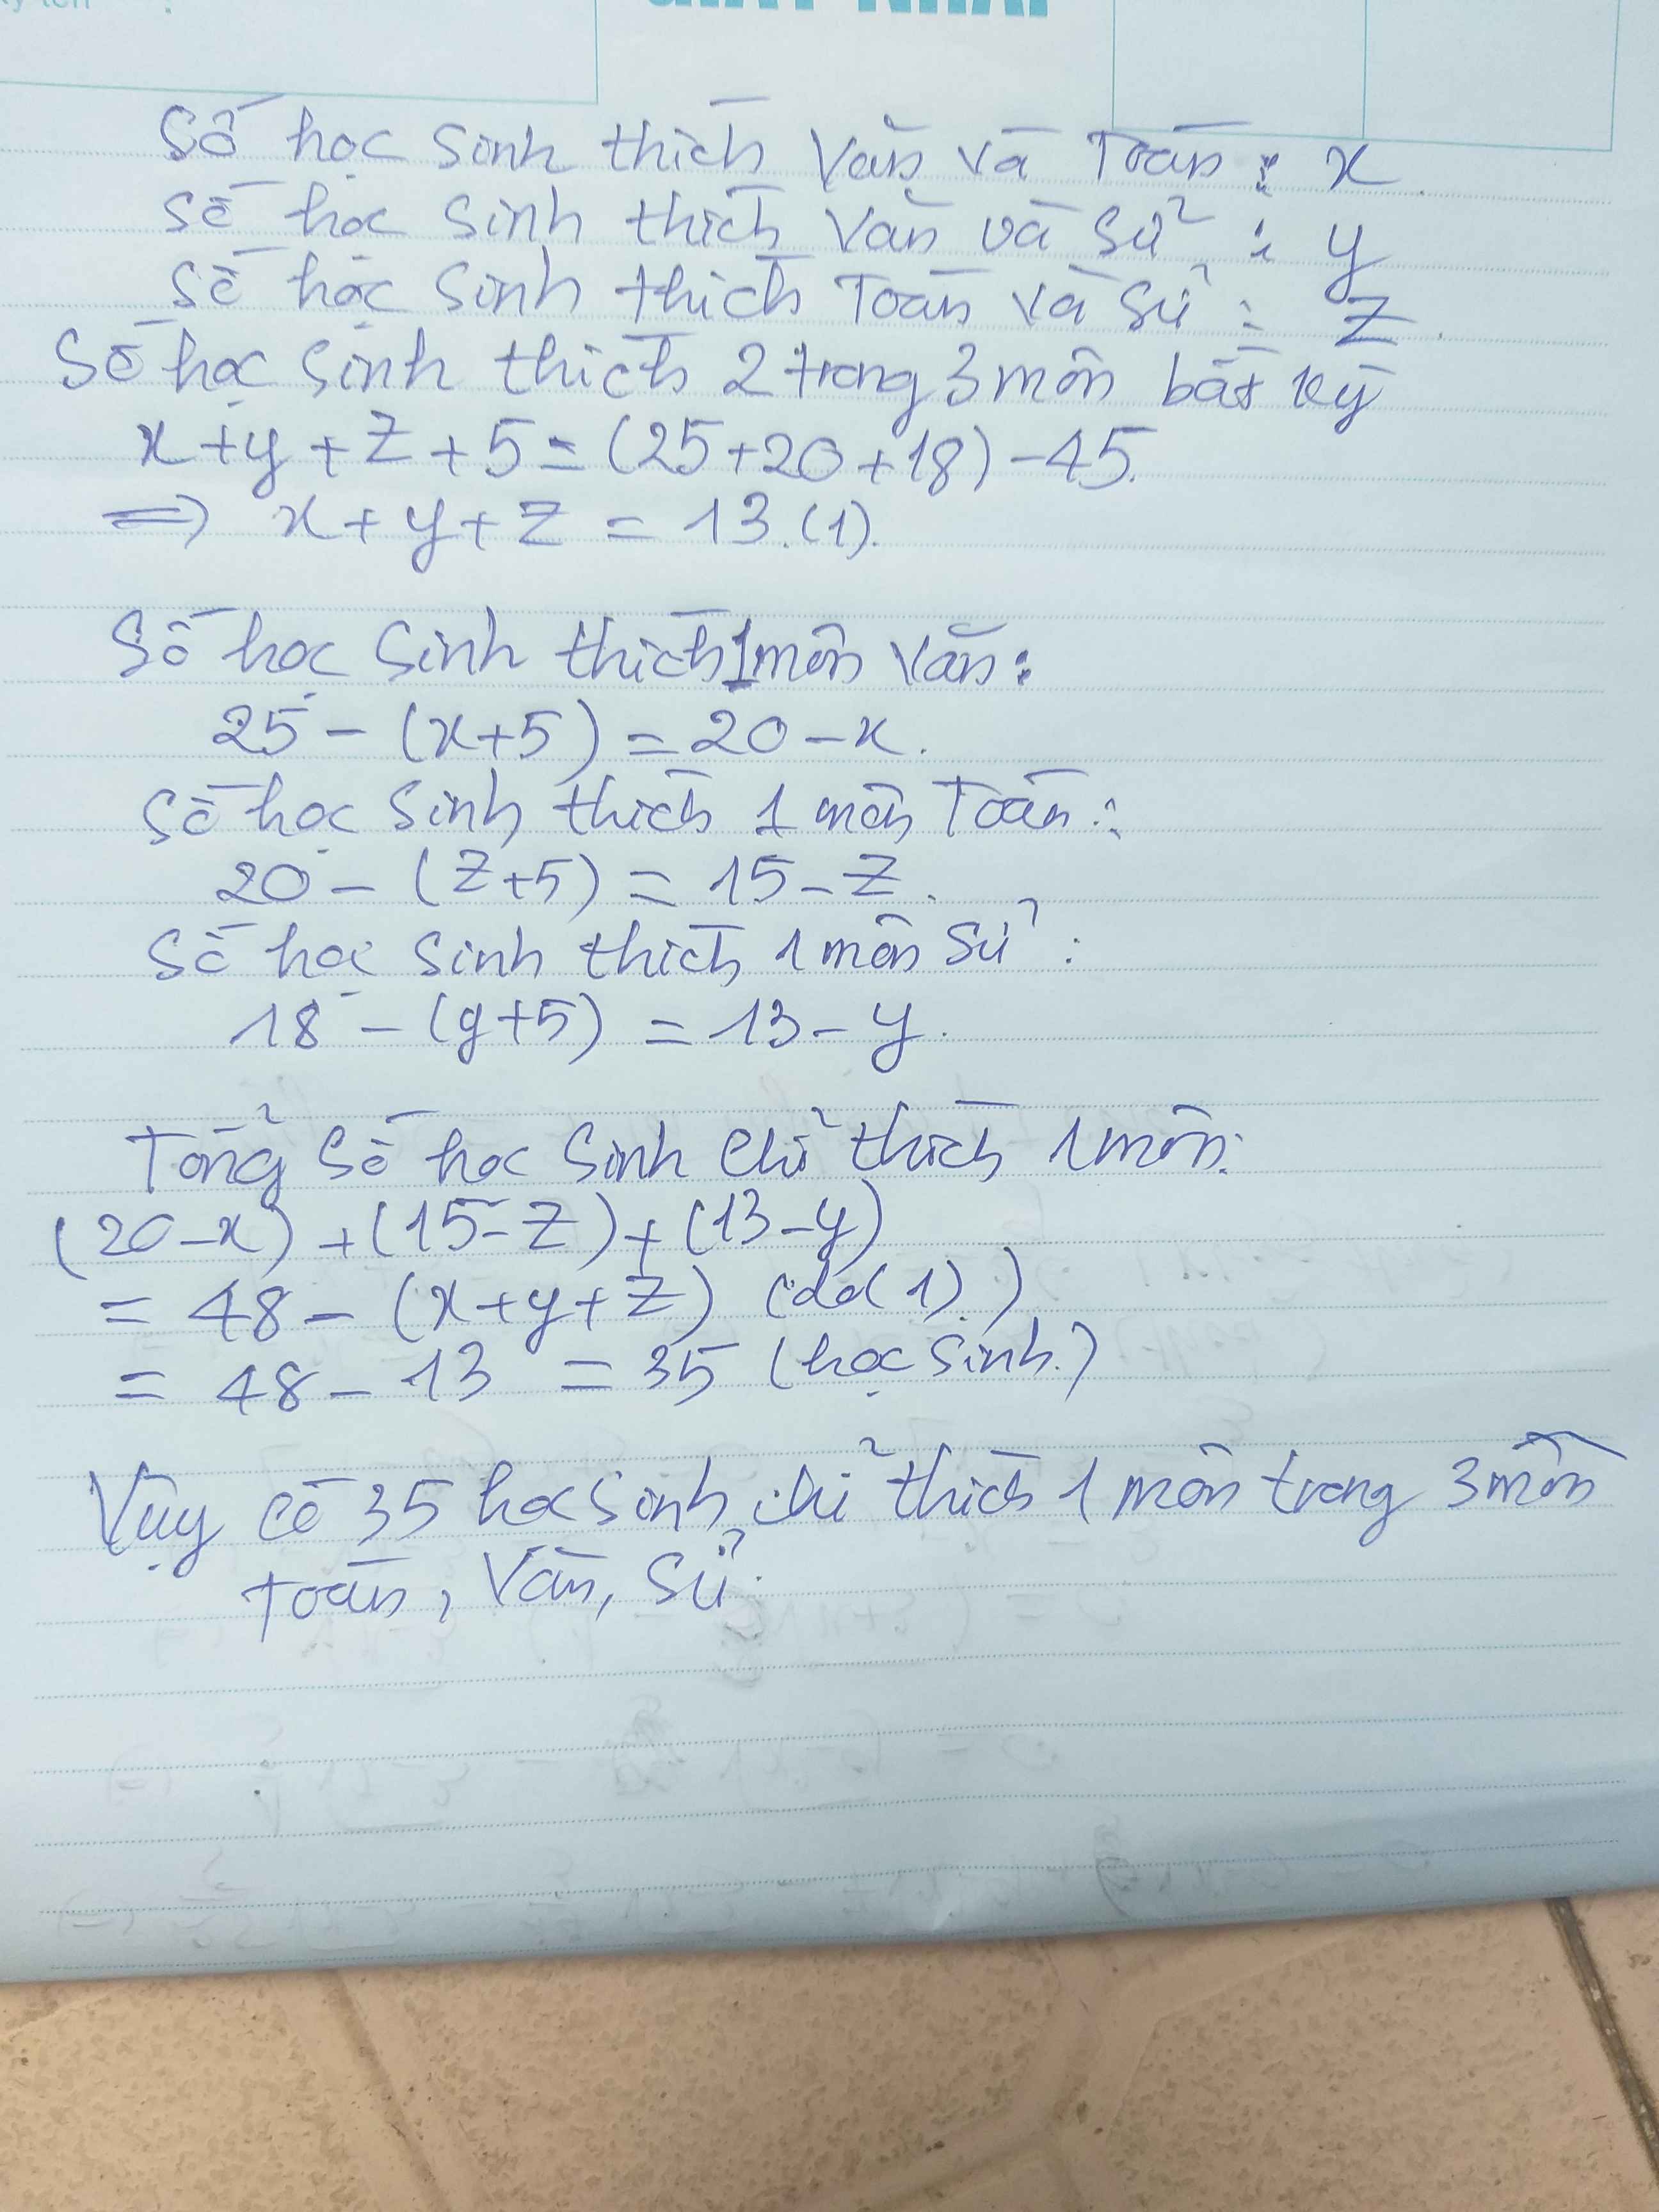 GIẤY NHÁP
Số học sinh thích Văn và Toán : x.
Số học sinh thích Văn và Sử : y
Số học sinh thích Toán và Sử : z.
Số học sinh thích 2 trong 3 môn bất kỳ
x + y + z + 5 = (25 + 20 + 18) - 45.
=> x + y + z = 13. (1).
Số học sinh thích 1 môn Văn :
25 - (x + 5) = 20 - x.
Số học sinh thích 1 môn Toán :
20 - (z + 5) = 15 - z.
Số học sinh thích 1 môn Sử :
18 - (y + 5) = 13 - y.
Tổng số học sinh chỉ thích 1 môn:
(20 - x) + (15 - z) + (13 - y)
= 48 - (x + y + z) (do (1).)
= 48 - 13 = 35 (học sinh.)
Vậy có 35 học sinh chỉ thích 1 môn trong 3 môn
Toán, Văn, Sử.